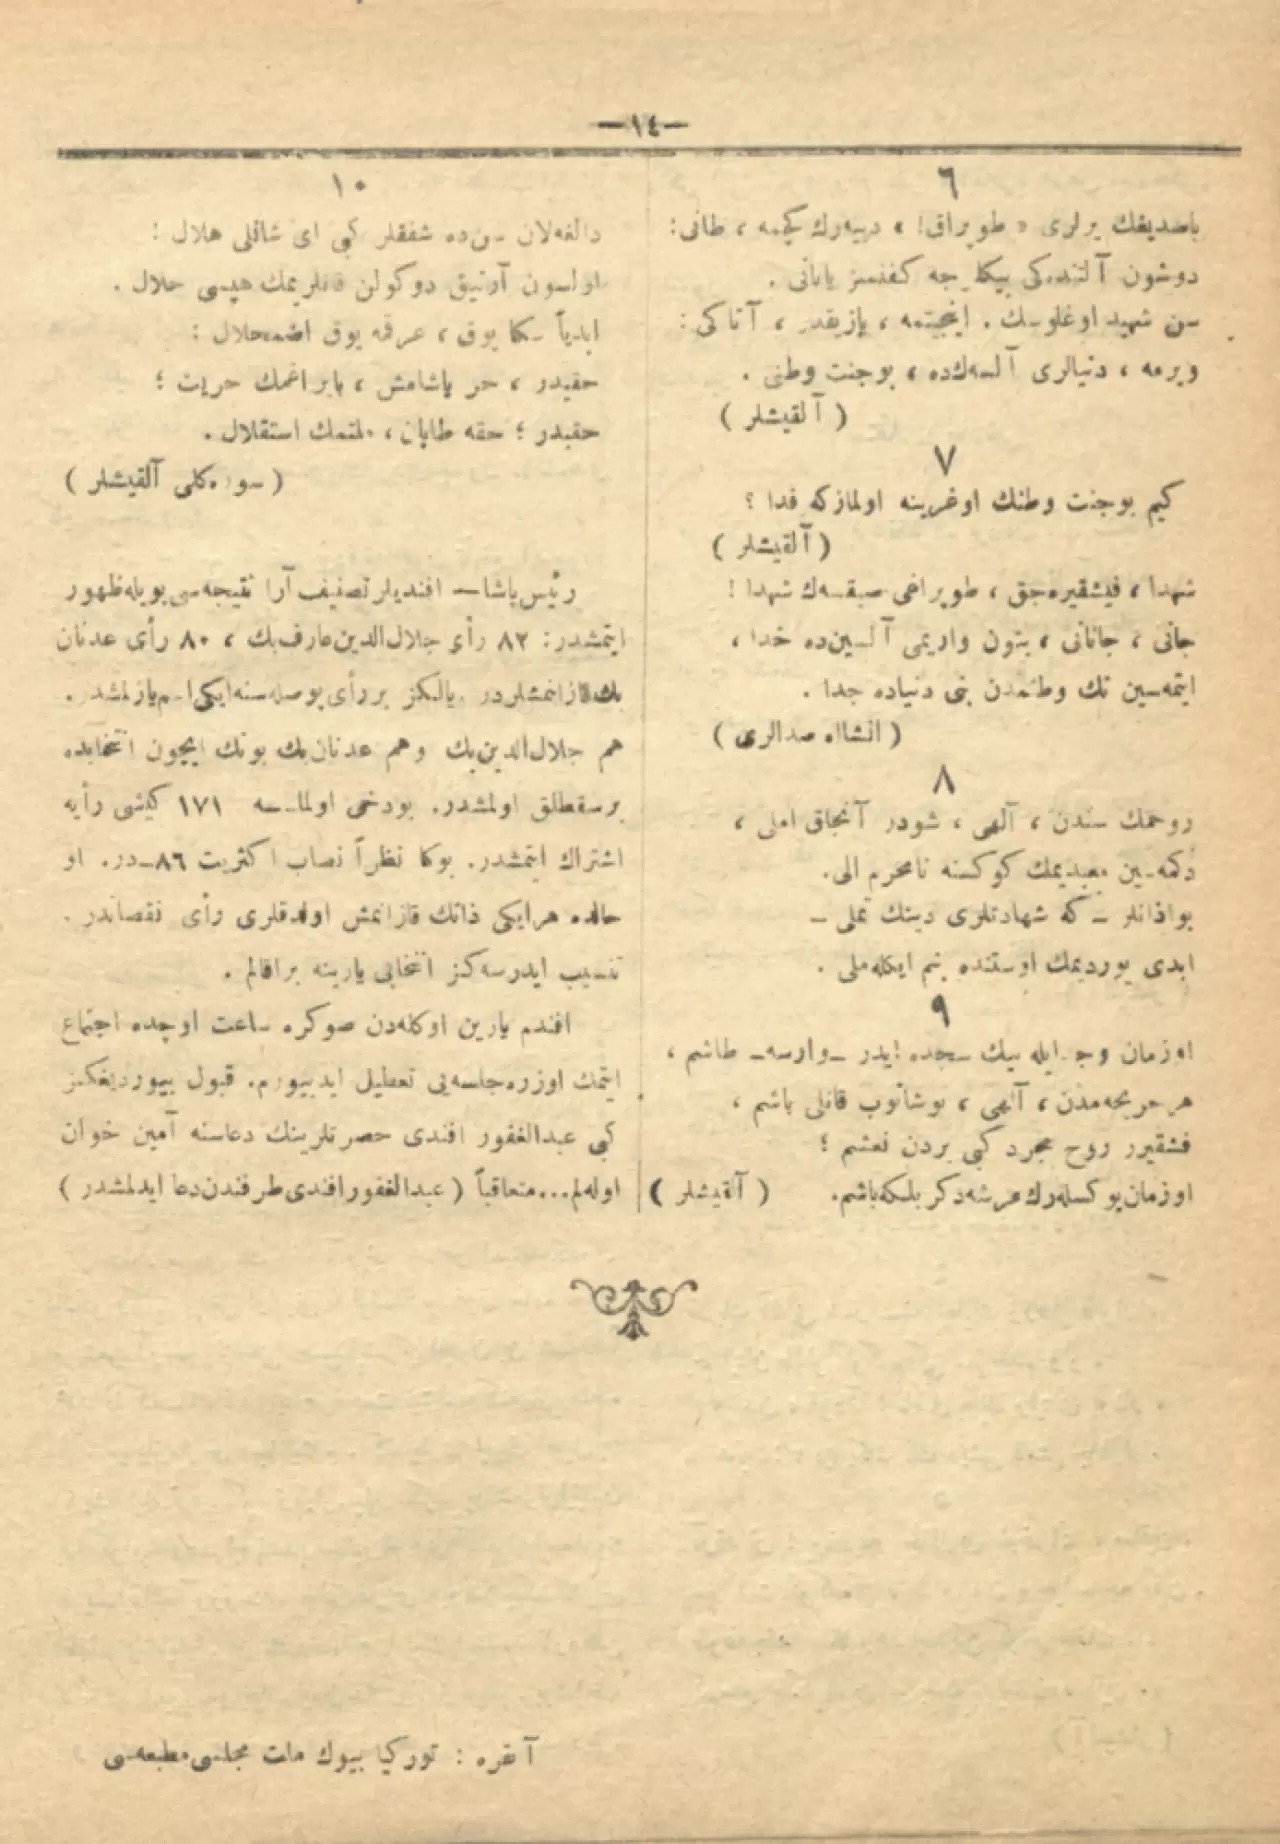 —١٤—
٦
باصديغك يرلرى « طوپراق! » دييه‌رك كچمه ، طانى :
دوشون آلتنده‌كى بيكلرجه كفنسز ياتانى .
سن شهيد اوغلوسك . اينجيتمه ، يازيقدر ، آتاكى :
ويرمه ، دنيالرى آلسه‌ك‌ده ، بوجنت وطنى .
( آلقيشلر )
٧
كيم بوجنت وطنك اوغرينه اولمازكه فدا ؟
( آلقيشلر )
شهدا ، فيشقيره‌جق ، طوپراغى صيقسه‌ك شهدا !
جانى ، جانانى ، بتون واريمى آلسين‌ده خدا ،
ايتمه‌سين تك وطنمدن بنى دنياده جدا .
( انشاالله صدالرى )
٨
روحمك سندن ، آلهى ، شودر آنجاق املى ،
دكمه‌سين معبديمك كوكسنه نامحرم الى.
بواذانلر ـ كه شهادتلرى دينك تملى ـ
ابدى يورديمك اوستنده بنم ايكله‌ملى .
٩
اوزمان وجد ايله بيك سجده ايدر ـ وارسه ـ طاشم ،
هرجريحه‌مدن ، آلهى ، بوشانوب قانلى ياشم ،
فشقيرر روح مجرد كبى يردن نعشم ؛
اوزمان يوكسله‌رك عرشه دكر بلكه باشم. ( آلقيشلر )
١٠
دالغه‌لان سن‌ده شفقلر كبى اى شانلى هلال !
اولسون آرتيق دوكولن قانلريمك هپسى حلال .
ابدياً سكا يوق ، عرقمه يوق اضمحلال :
حقيدر ، حر ياشامش ، بايراغمك حريت ؛
حقيدر ؛ حقه طاپان ، ملتمك استقلال .
( سوره‌كلى آلقيشلر )
رئيس پاشا — افنديلر تصنيف آرا نتيجه‌سى بويله ظهور
ايتمشدر : ٨٢ رأى جلال‌الدين عارف بك ، ٨٠ رأى عدنان
بك قازانمشلردر . يالكز بررأى پوصله‌سنه ايكى اسم يازلمشدر .
هم جلال‌الدين بك وهم عدنان بك بونك ايچون انتخابده
برسقطلق اولمشدر. بودخى اولماسه ١٧١ كيشى رأيه
اشتراك ايتمشدر. بوكا نظراً نصاب اكثريت ٨٦ ـ در. او
حالده هرايكى ذاتك قازانمش اولدقلرى رأى نقصاندر .
تنسيب ايدرسه‌كز انتخابى يارينه براقالم .
افندم يارين اوكله‌دن صوكره ساعت اوچده اجتماع
ايتمك اوزره جلسه‌يى تعطيل ايدييورم. قبول بيورديغكز
كبى عبدالغفور افندى حضرتلرينك دعاسنه آمين خوان
اوله‌لم... متعاقباً ( عبدالغفور افندى طرفندن دعا ايدلمشدر )
آنقره : توركيا بيوك ملت مجلسى مطبعه‌سى